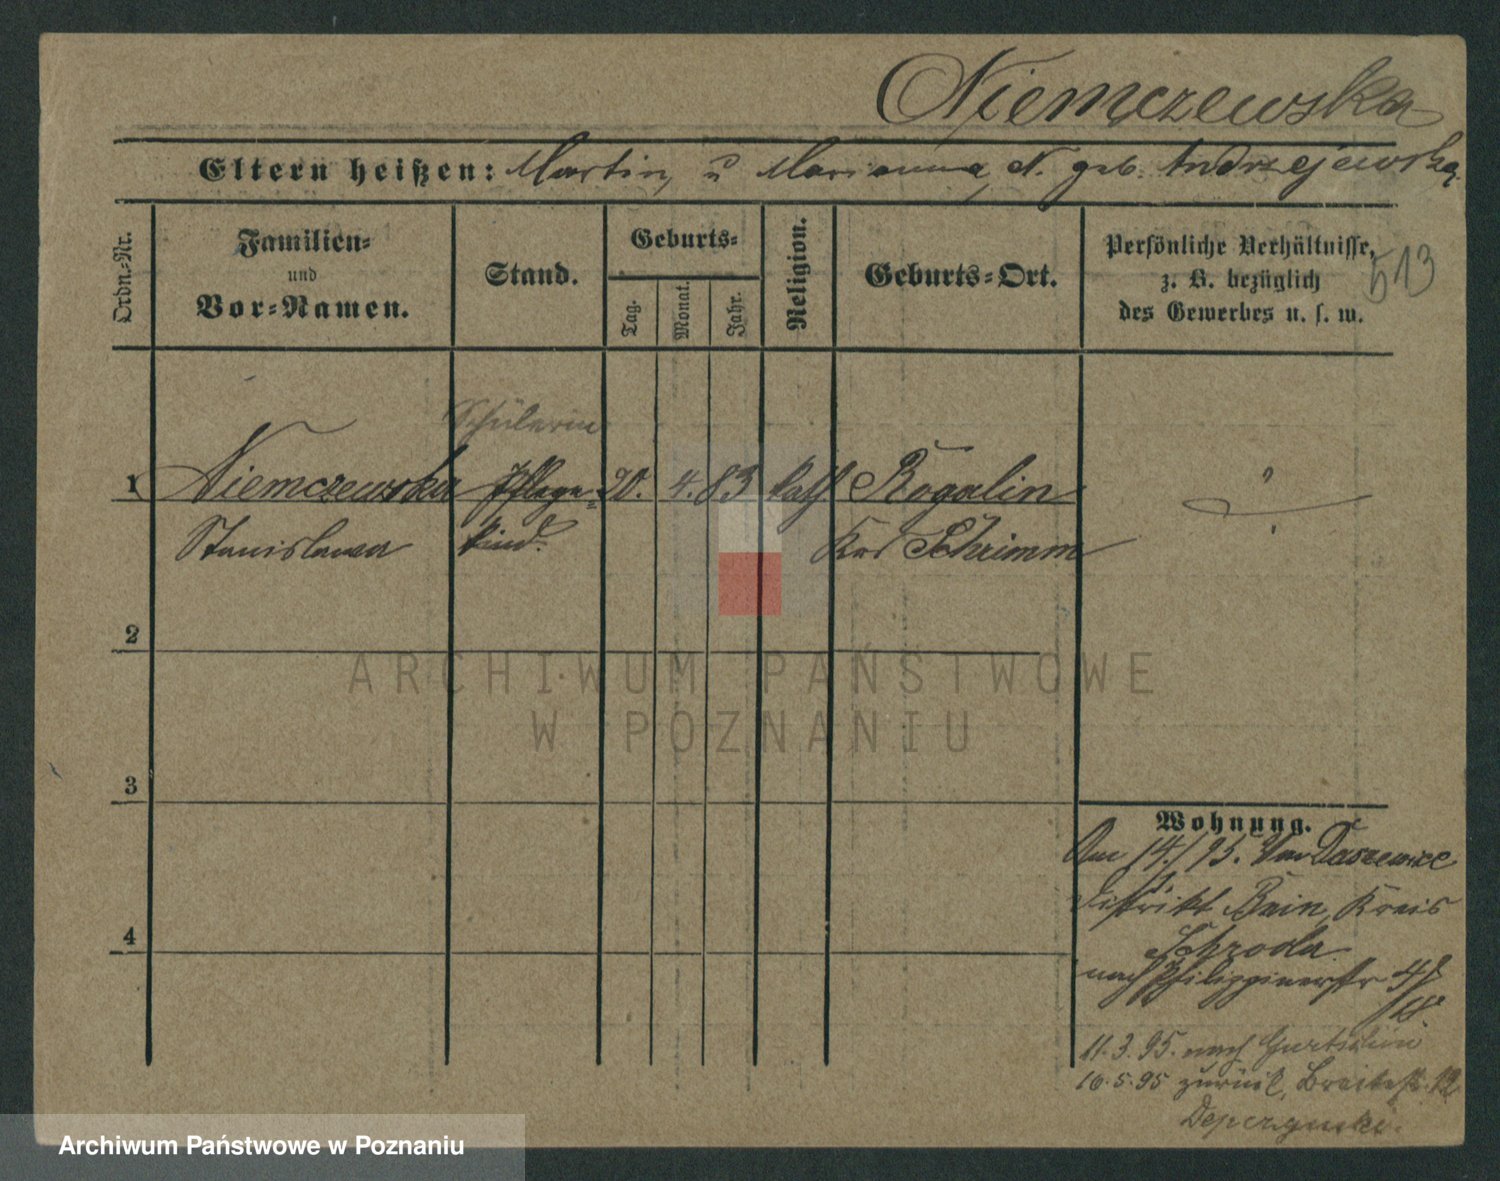 Niemczewska
Eltern heißen: Martin, u Marianna N. geb. Andrzejewska
Ordn.-Nr.
Familien-
und
Vor-Namen.
Stand.
Geburts-
Tag.
Monat.
Jahr.
Religion.
Geburts-Ort.
Persönliche Verhältnisse,
z. B. bezüglich
des Gewerbes u. s. w.
513
Schülerin
1 Niemczewska Pflege- 20. 4. 83 kath Rogalin
Stanislawa kind. Krs Schrimm
2
3
4
Wohnung.
Am 14./1 95. Von Daszewice
Distrikt Bnin, Kreis
Schroda
nach Philippinerstr 4/
11.3.95. nach Gurtschin
16.5.95 zurück, Breitestr. 12
ARCHIWUM PAŃSTWOWE
W POZNANIU
Archiwum Państwowe w Poznaniu